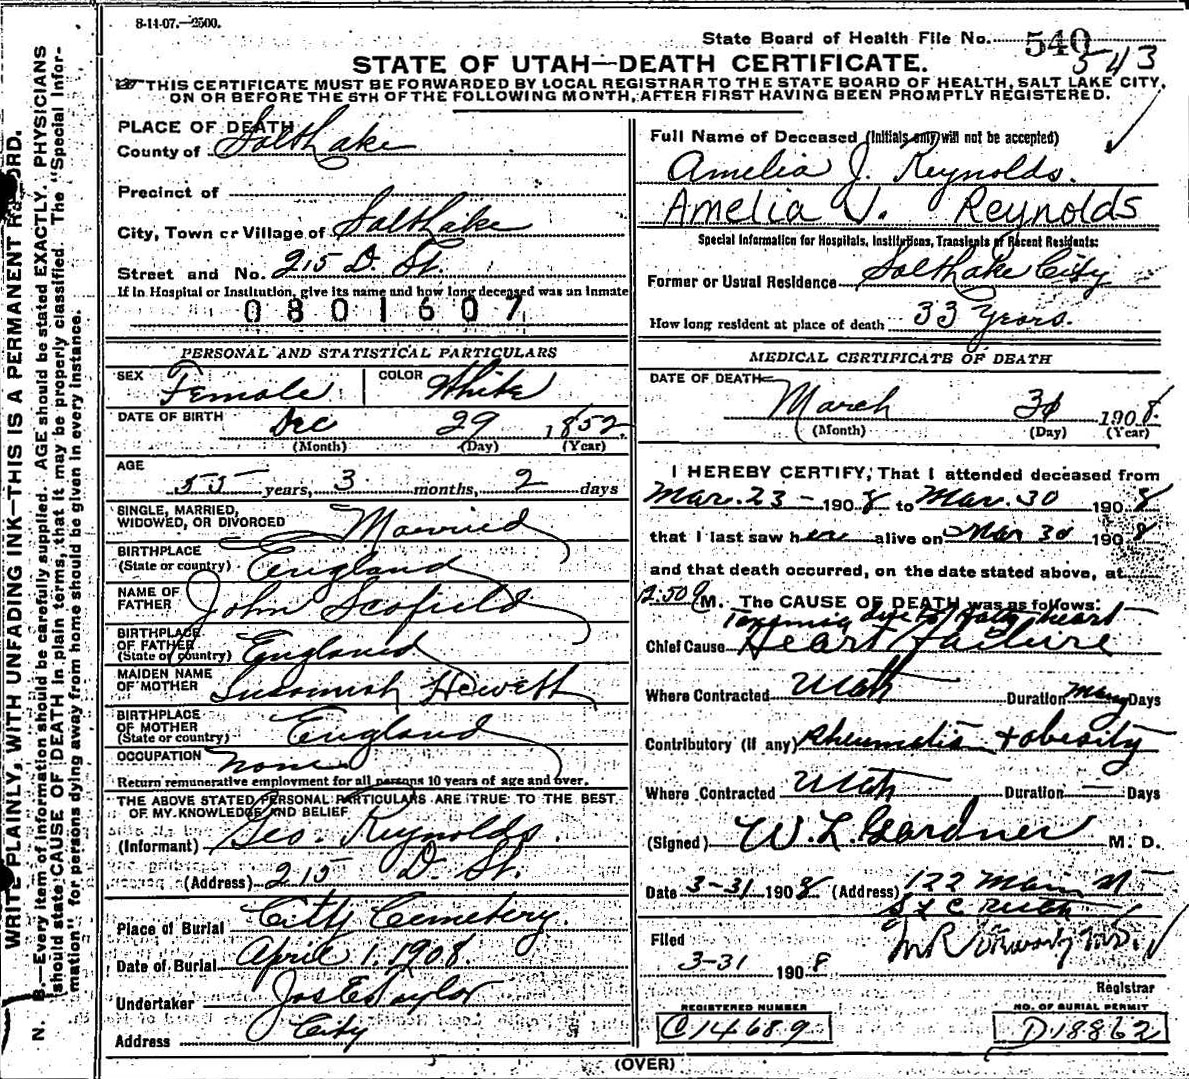 8-11-07.—2500.
State Board of Health File No. 540
543
STATE OF UTAH—DEATH CERTIFICATE.
THIS CERTIFICATE MUST BE FORWARDED BY LOCAL REGISTRAR TO THE STATE BOARD OF HEALTH, SALT LAKE CITY,
ON OR BEFORE THE 5TH OF THE FOLLOWING MONTH, AFTER FIRST HAVING BEEN PROMPTLY REGISTERED.
WRITE PLAINLY, WITH UNFADING INK—THIS IS A PERMANENT RECORD.
N. B.—Every item of information should be carefully supplied. AGE should be stated EXACTLY. PHYSICIANS
should state CAUSE OF DEATH in plain terms, that it may be properly classified. The "Special Infor-
mation" for persons dying away from home should be given in every instance.
PLACE OF DEATH
County of Salt Lake
Precinct of
City, Town or Village of Salt Lake
Street and No. 215 D. St.
If in Hospital or Institution, give its name and how long deceased was an inmate
0801607
PERSONAL AND STATISTICAL PARTICULARS
SEX Female COLOR White
DATE OF BIRTH Dec 29 1852
(Month) (Day) (Year)
AGE
55 years, 3 months, 2 days
SINGLE, MARRIED,
WIDOWED, OR DIVORCED Married
BIRTHPLACE
(State or country) England
NAME OF
FATHER John Scofield
BIRTHPLACE
OF FATHER
(State or country) England
MAIDEN NAME
OF MOTHER Susannah Hewett
BIRTHPLACE
OF MOTHER
(State or country) England
OCCUPATION None
Return remunerative employment for all persons 10 years of age and over.
THE ABOVE STATED PERSONAL PARTICULARS ARE TRUE TO THE BEST
OF MY KNOWLEDGE AND BELIEF
(Informant) Geo. Reynolds.
(Address) 215 D. St.
Place of Burial City Cemetery.
Date of Burial April 1. 1908.
Undertaker Jos E Taylor
Address City
Full Name of Deceased (Initials only will not be accepted)
Amelia J. Reynolds.
Amelia J. Reynolds
Special Information for Hospitals, Institutions, Transients or Recent Residents:
Former or Usual Residence Salt Lake City
How long resident at place of death 33 Years.
MEDICAL CERTIFICATE OF DEATH
DATE OF DEATH
March 31 1908.
(Month) (Day) (Year)
I HEREBY CERTIFY, That I attended deceased from
Mar. 23 - 1908 to Mar. 30 1908
that I last saw her alive on Mar 30 1908
and that death occurred, on the date stated above, at
2.50 M. The CAUSE OF DEATH was as follows:
due to fatty heart
Chief Cause Heart failure
Where Contracted Utah Duration many Days
Contributory (if any) Rheumatism + obesity
Where Contracted Utah Duration — Days
(Signed) W. L. Gardner M. D.
Date 3-31 1908 (Address) 122 Main St
S L C Utah
Filed
3-31 1908
Registrar
REGISTERED NUMBER
C14689
NO. OF BURIAL PERMIT
D18862
(OVER)